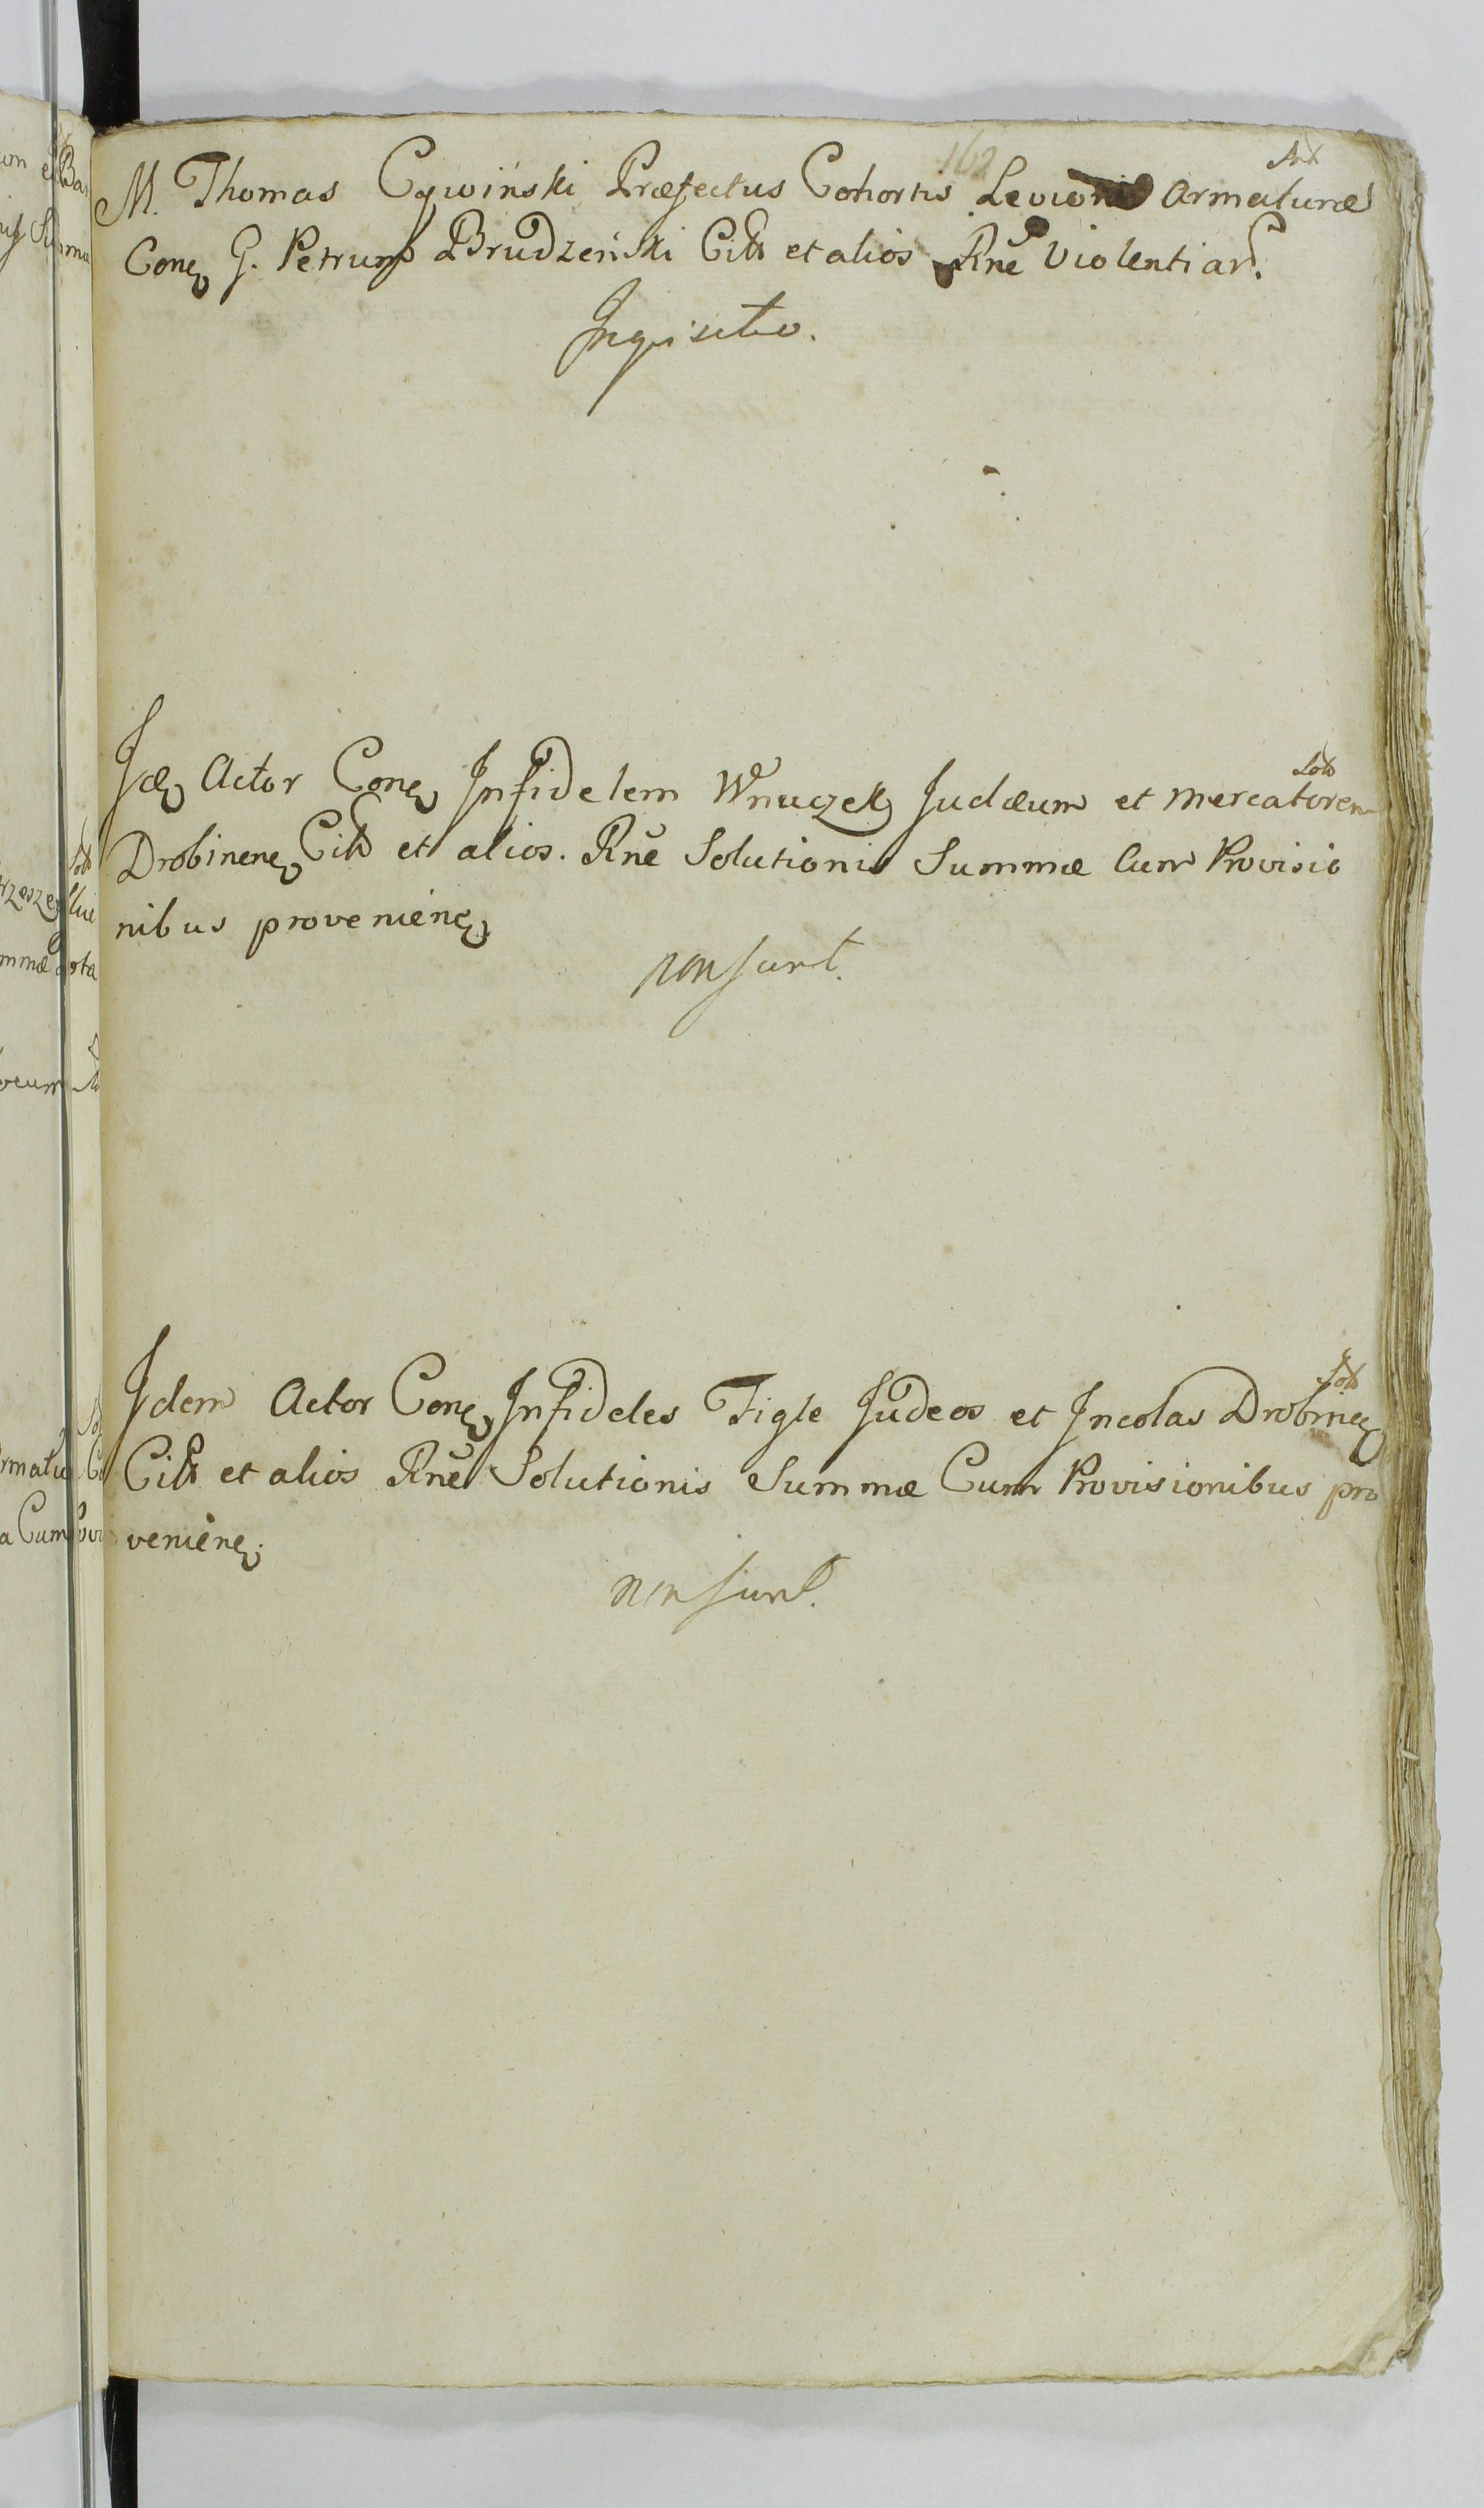 162
M. Thomas Cywiński Præfectus Cohortis Levioris Armaturæ
Conq G. Petrum Brudzeński Citt et alios Rñe Violentiar.
Inquisitio.
Idq Actor Conq Infidelem Wnuczek Judæum et Mercatorem
Drobinenq Citt et alios. Rñe Solutionis Summæ Cum Provisio
nibus provenienq
non sunt.
Idem Actor Conq Infideles Figle Judeos et Incolas Drobinq
Citt et alios Rñe Solutionis Summæ Cum Provisionibus pro
venienq.
non sunt.